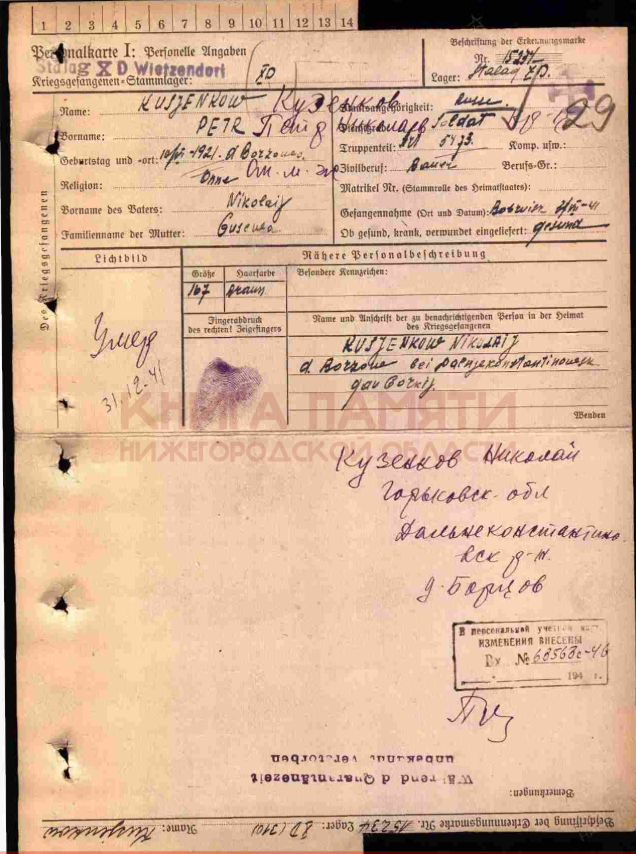 1 2 3 4 5 6 7 8 9 10 11 12 13 14
Personalkarte I: Personelle Angaben
Stalag X D Wietzendorf
Kriegsgefangenen-Stammlager: XD
Beschriftung der Erkennungsmarke
Nr. 15234
Lager: Stalag XD.
29
Des Kriegsgefangenen
Name: KUSJENKOW Кузенков
Staatsangehörigkeit: Russe
Vorname: PETR Петр Николаев
Dienstgrad: Soldat
Truppenteil: 5473. Komp. usw.:
Geburtstag und -ort: 1921. d Borzowo
Zivilberuf: Bauer Berufs-Gr.:
Religion: Ohne
Matrikel Nr. (Stammrolle des Heimatstaates):
Vorname des Vaters: Nikolaij
Gefangennahme (Ort und Datum): 41
Familienname der Mutter:
Ob gesund, krank, verwundet eingeliefert: gesund
Lichtbild
Nähere Personalbeschreibung
Größe Haarfarbe Besondere Kennzeichen:
167 Braun
Fingerabdruck
des rechten! Zeigefingers
Name und Anschrift der zu benachrichtigenden Person in der Heimat
des Kriegsgefangenen
KUSJENKOW NIKOLAIJ
d Borzowo bei Dalnjekonstantinowsk
gau Gorkij
Умер
31.12.41
Wenden
КНИГА ПАМЯТИ
НИЖЕГОРОДСКОЙ ОБЛАСТИ
Кузенков Николай
Горьковск. обл
Дальнеконстантино
вск р-н.
д. Борцов
В персональный учетн
ИЗМЕНЕНИЯ ВНЕСЕНЫ
Вх № 68568с-46
194 г.
Während d Quarantänezeit
unbekannt verstorben
Bemerkungen:
Beschriftung der Erkennungsmarke Nr. 15234 Lager: XD (310) Name: Kusjenkow